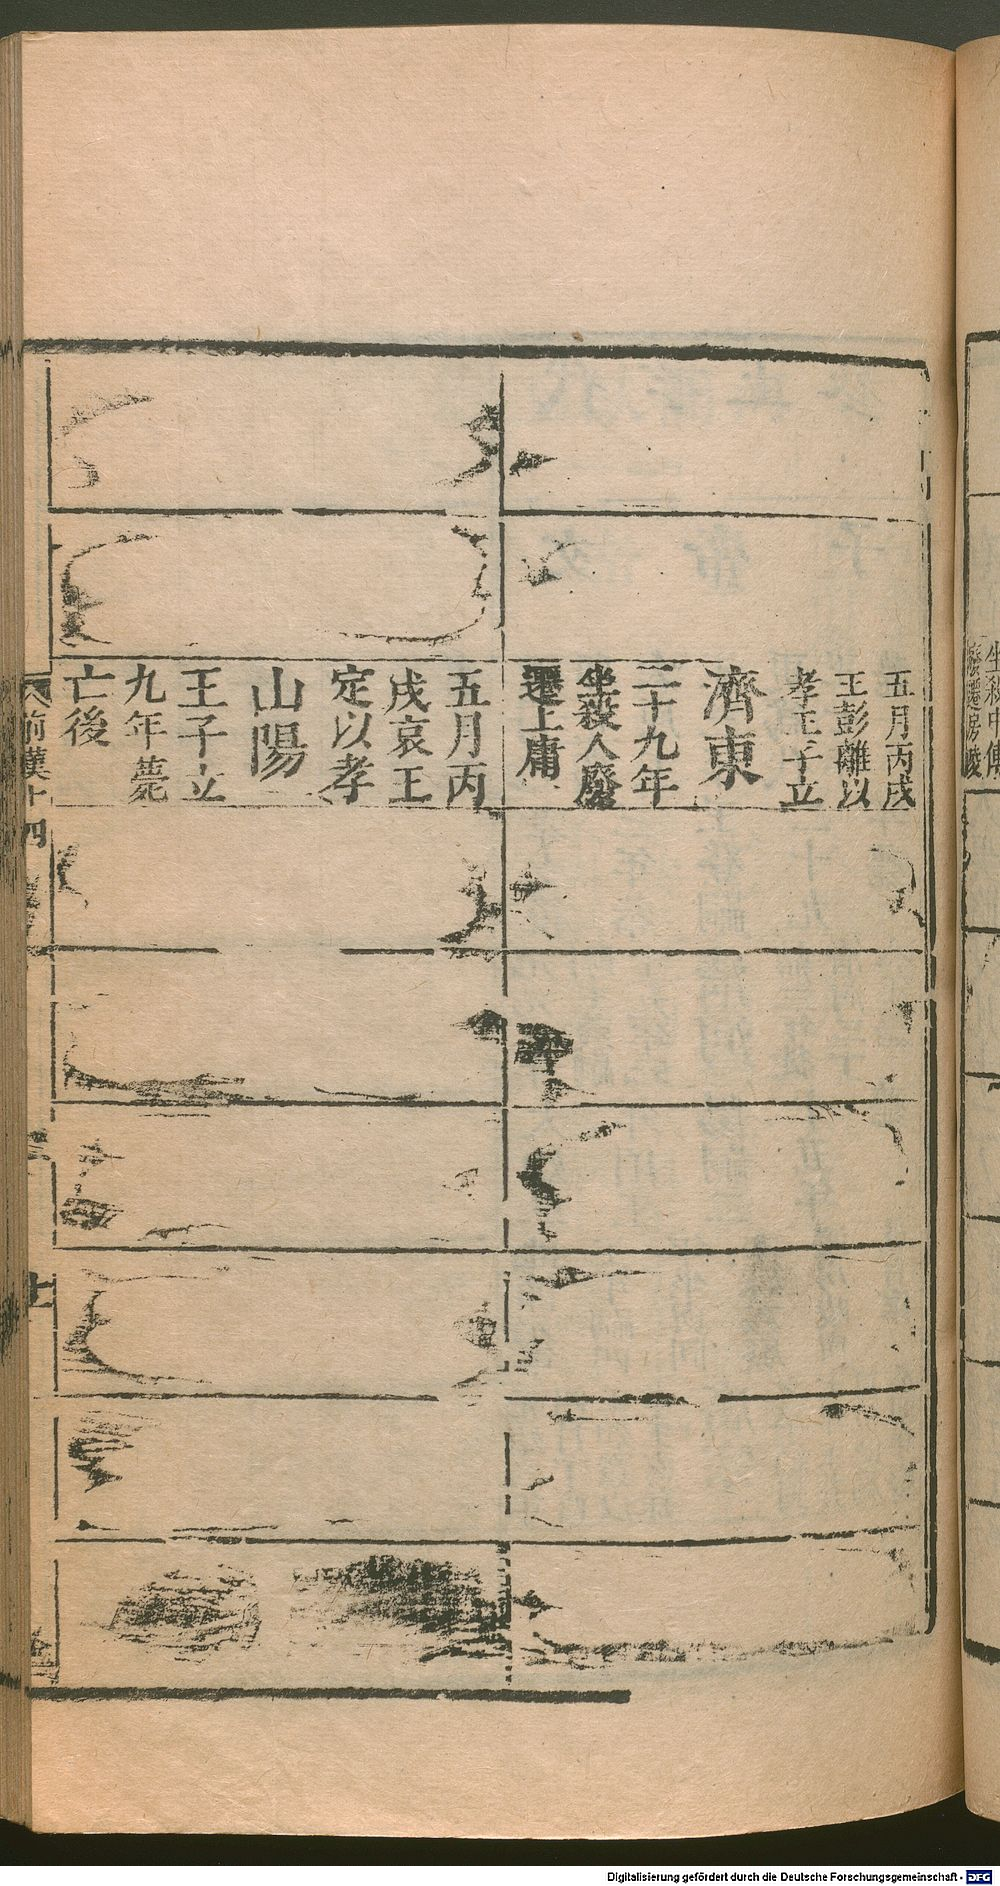 坐殺中傅
廢遷房陵
五月丙戌
王彭離以
孝王子立
濟東
二十九年
坐殺人廢
遷上庸
五月丙
戌哀王
定以孝
山陽
王子立
九年薨
亡後
前漢十四
Digitalisierung gefördert durch die Deutsche Forschungsgemeinschaft - DFG